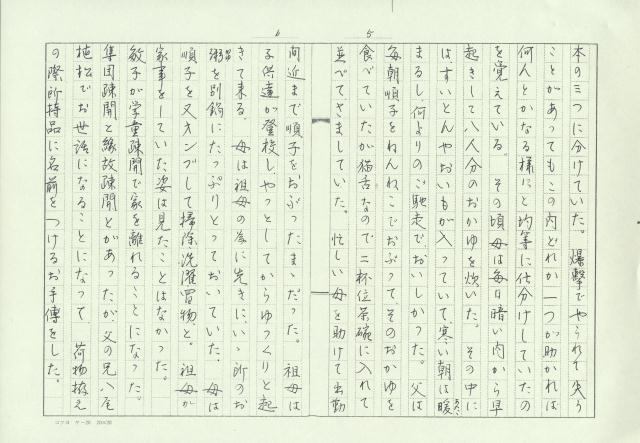 本の三つに分けていた。爆撃でやられて失う
ことがあってもこの内どれか一つが助かれば
何人とかなる様にと均等に仕分けしていたの
を覚えている。その頃母は毎日暗い内から早
起きして八人分のおかゆを炊いた。その中に
は、すいとんやおいもが入っていて、寒い朝は暖
あたた
まるし、何よりのご馳走でおいしかった。父は
毎朝順子をねんねこでおぶって、そのおかゆを
食べていたが猫舌なので二杯位茶碗に入れて
並べてさましていた。忙しい母を助けて出勤
5
6
間近まで順子をおぶったまゝだった。祖母は
子供達が登校し、やっとしてからゆっくりと起
きて来る。母は祖母の為に先きにいゝ所のお
粥を別鍋にたっぷりとっておいていた。母は
順子を又オンブして掃除洗濯買物と。祖母が
家事をしていた姿は見たことはなかった。
敏子が学童疎開で家を離れることになった。
集団疎開と縁故疎開とがあったが父の兄八尾
植松でお世話になることになって 荷物揃え
の際所持品に名前をつけるお手傳をした。
コクヨ ケー20 20×20